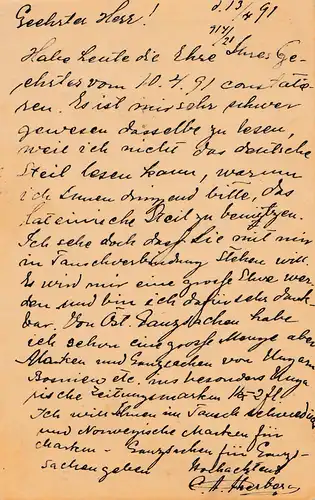 Geehrter Herr! d. 13/4 91
Habe heute die Ehre Ihres Ge-
ehrter vom 10.4.91 constatie-
ren. Es ist mir sehr schwer
gewesen dasselbe zu lesen,
weil ich nicht das deutsche
Steil lesen kann, warum
ich Ihnen dringend bitte, das
lateinische Steil zu benutzen.
Ich sehe doch dass Sie mit mir
in Tauschverbindung stehen will.
Es wird mir eine große Ehre wer-
den und bin ich dafür sehr dank-
bar. Von Öst. Ganzsachen habe
ich schon eine große Menge aber
Marken und Ganzsachen von Ungarn
Bosnien etc. besonders Unga-
rische Zeitungsmarken
Ich will Ihnen im Tausch schwedische
und Norwegische Marken für
Marken - Ganzsachen für Ganz-
sachen geben Hochachtend